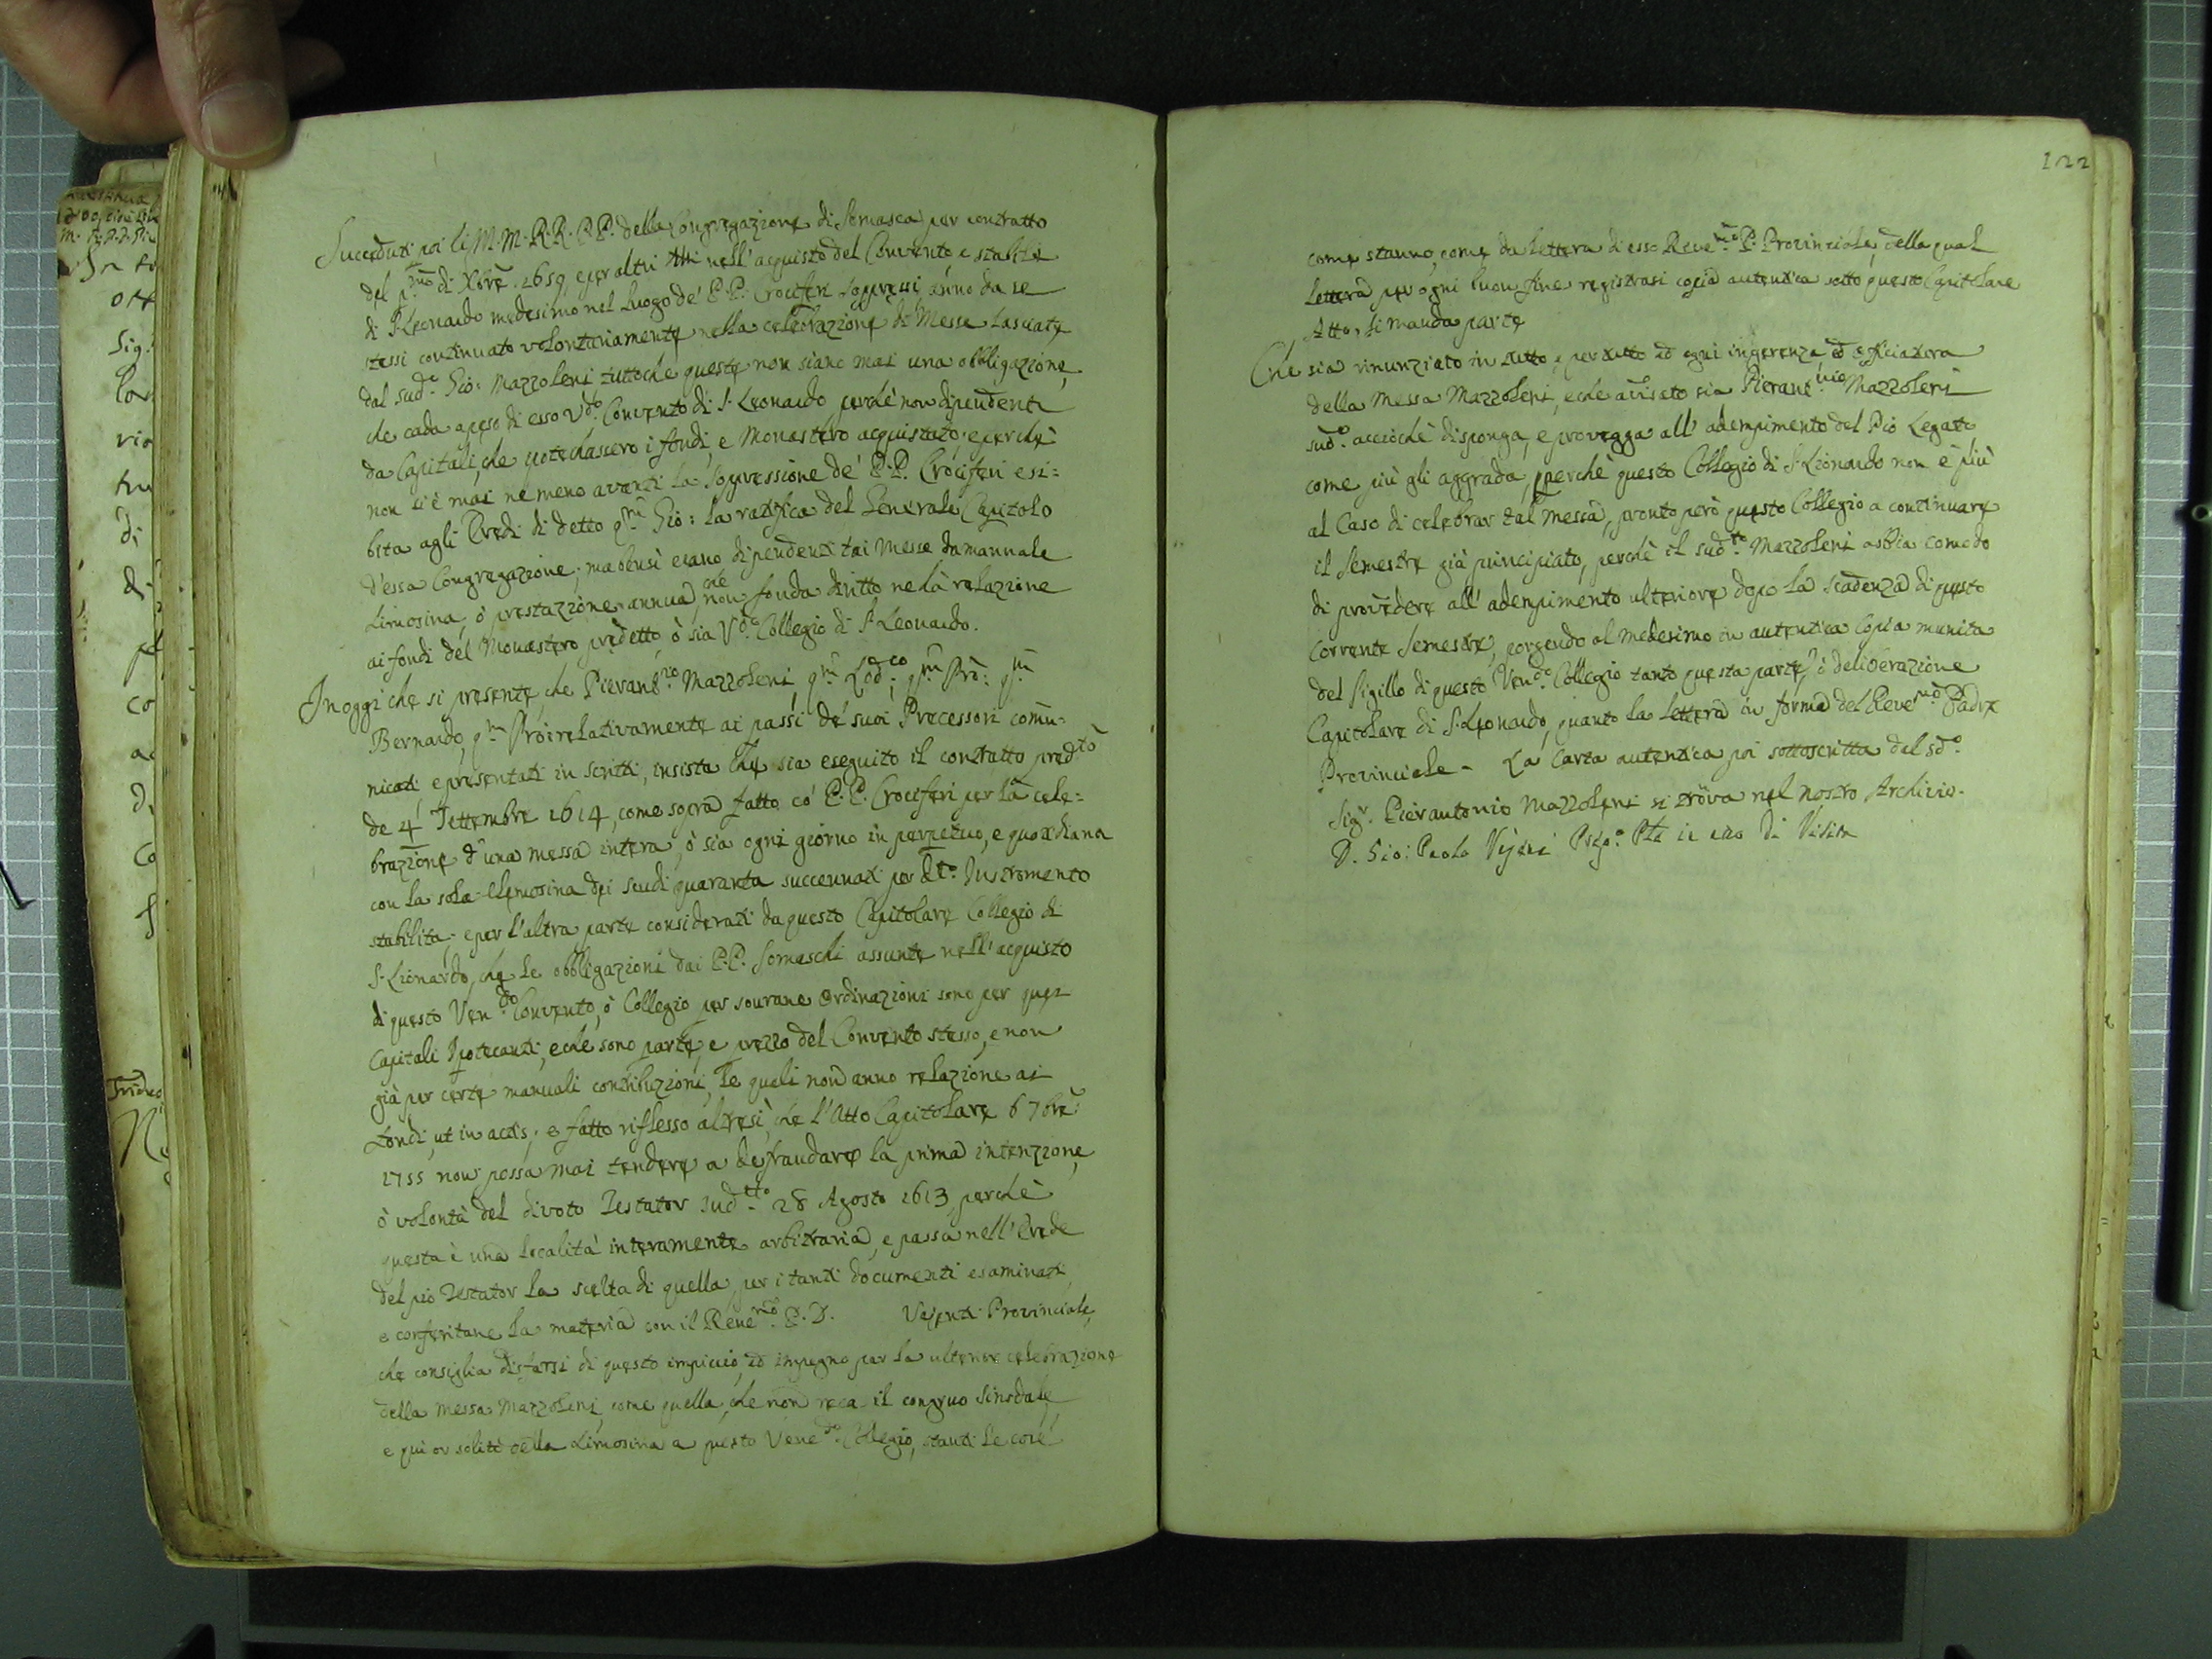 Succeduti poi li M. M. R. R. P. P. della Congregazione di Somasca per contratto
del p.mo di Xbre. 1659, e per altri Atti nell' acquisto del Convento e stabile
di S. Leonardo medesimo nel luogo de' P. P. Crociferi soppressi ànno da se
stessi continuato volontariamente nella celebrazione di Messe lasciate
dal sud.o Gio: Mazzoleni tuttoche queste non siano mai una obbligazione,
che cada a peso di esso V.do Convento di S. Leonardo perchè non dipendenti
da Capitali, che ipotecassero i fondi, e Monastero acquistato; e perchè
non si è mai ne meno avanti la soppressione de' P. P. Crociferi esi=
bita agli Eredi di detto q.m Gio: la ratifica del Generale Capitolo
d'essa Congregazione; ma bensì erano dipendenti tai Messe da mannale
Limosina, ò prestazione annua, che non fonda diritto ne la relazione
ai fondi del Monastero predetto, ò sia V.do Collegio di S. Leonardo.
In oggi che si presente, che Pierant.nio Mazzoleni, q.m Lod.co q.m Pro: q.m
Bernardo, q.m Pro: relativamente ai passi de' suoi Precessori comu=
nicati e presentati in scritti, insista che sia eseguito il contratto pred.to
de 4 Settembre 1614, come sopra fatto co' P. P. Crociferi per la cele=
brazione d'una messa intera, ò sia ogni giorno in perpetuo, e quotidiana
con la sola elemosina dei scudi quaranta succennati per d.to Instromento
stabilita; e per l'altra parte considerati da questo Capitolare Collegio di
S. Lionardo, che le obbligazioni dai P. P. Somaschi assunte nell' acquisto
di questo Ven.do Convento, ò Collegio per sourane Ordinazioni sono per quei
Capitali Ipotecanti, e che sono parte, e prezzo del Convento stesso, e non
già per certe manuali contribuzioni, le quali non anno relazione ai
Fondi, ut in actis; e fatto riflesso altresì, che l'Atto Capitolare 6 7bre
1755 non possa mai tendere a defraudare la prima intenzione,
ò volontà del divoto Testator sud.tto 28 Agosto 1613, perchè
questa è una località interamente arbitraria, e passa nell' Erede
del pio Testator la scelta di quella, per i tanti documenti esaminati,
e conferitane la materia con il Reve.mo P. D. Vejenti Provinciale,
che consiglia disfarsi di questo impiccio, ed impegno per la ulterior celebrazione
della messa Mazzoleni, come quella, che non reca il congruo sinodale
e qui or solito della Limosina a questo Vene.do Collegio, stanti le cose
122
come stanno, come da lettera di esso Reve.mo P. Provinciale, della qual
lettera per ogni buon fine registrasi copia autentica sotto questo Capitolare
Atto, si manda parte
Che sia rinunziato in tutto, e per tutto ad ogni ingerenza, ed officiatora
della Messa Mazzoleni, e che avisato sia Pierant.nio Mazzoleni
sud.o acciòchè disponga, e provegga all' adempimento del Pio Legato
come più gli aggrada, perchè questo Collegio di S. Lionardo non è più
al Caso di celebrar tal messa, pronto però questo Collegio a continuare
il Semestre già principiato, perchè il sud.tto Mazzoleni abbia comodo
di provedere all' adempimento ulteriore dopo la scadenza di questo
Corrente Semestre, porgendo al medesimo in autentica Copia munita
del sigillo di questo Ven.do Collegio tanto questa parte, ò deliberazione
Capitolare di S. Leonardo, quanto la lettera in forma del Reve.mo Padre
Provinciale - La Carta autentica poi sottoscritta dal sd.o
Sig.r Pierantonio Mazzoleni si trova nel nostro Archivio.
D. Gio: Paolo